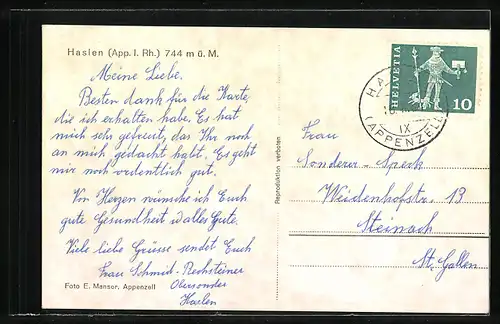 Haslen (App. I. Rh.) 744 m ü. M.
Meine Liebe.
Besten dank für die Karte,
die ich erhalten habe. Es hat
mich sehr gefreut, das Ihr noch
an mich gedacht habt. Es geht
mir noch ordentlich gut.
Von Herzen wünsche ich Euch
gute Gesundheit u alles Gute.
Viele liebe Grüsse sendet Euch
Frau Schmid-Rechsteiner
Obersonder
Haslen
Foto E. Manser, Appenzell
Reproduktion verboten
HELVETIA
10
HA
IX
(APPENZELL
Frau
Sonderer-Speck
Weidenhofstr. 13
Steinach
St. Gallen